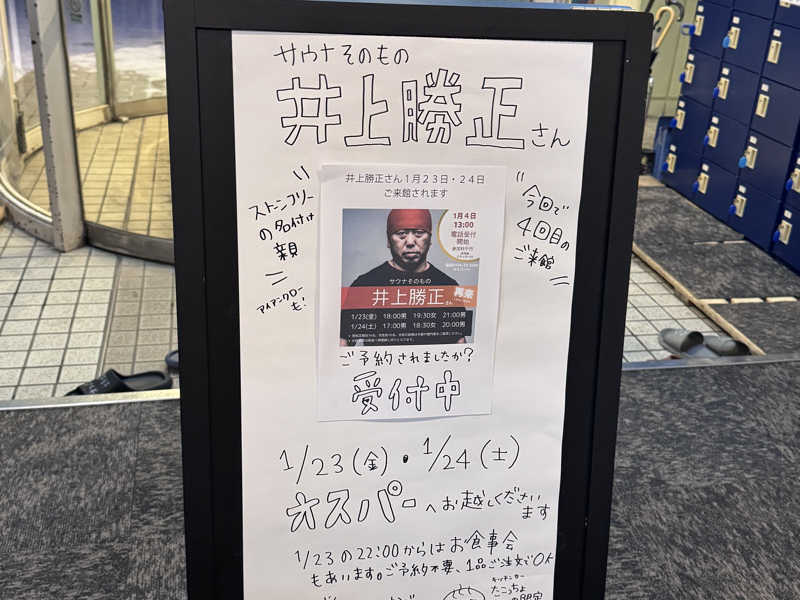 サウナそのもの
井上勝正さん
井上勝正さん1月23日・24日
ご来館されます
1月4日
13:00
電話受付
開始
サウナそのもの
井上勝正さん
再来
1/23(金) 18:00男 19:30女 21:00男
1/24(土) 17:00男 18:30女 20:00男
ご予約されましたか?
受付中
ストーンフリー
の名付け
親
アイアンクロー
も!
今回で
4回目の
ご来館
1/23(金)・1/24(土)
オスパーへお越しください
ます
1/23の22:00からはお食事会
もあります。ご予約不要、1品ご注文でOK
キッチンカー
たこっちょ